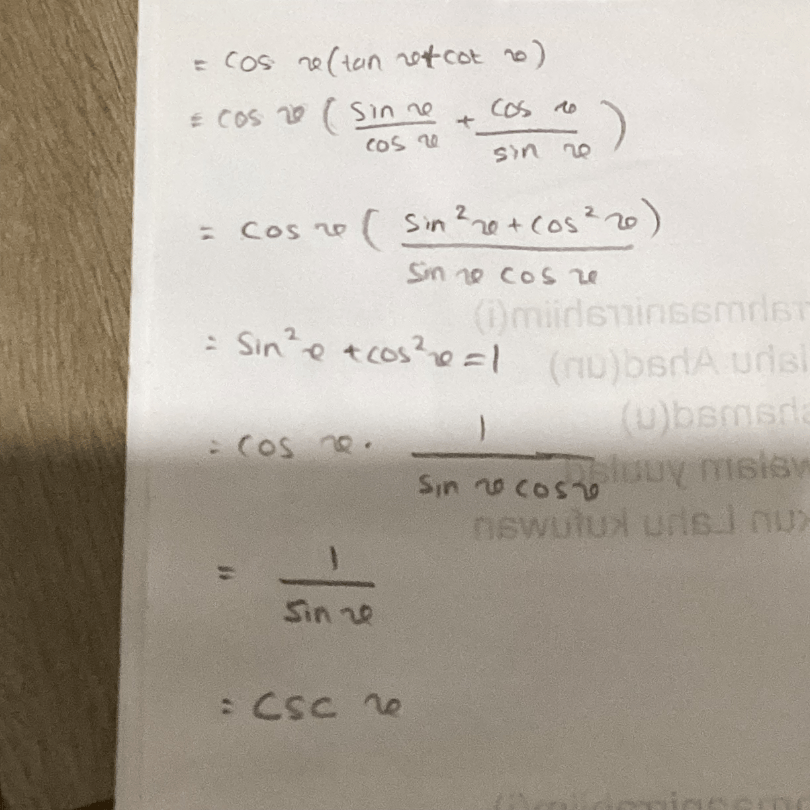 = cos x (tan x + cot x)
= cos x ( sin x / cos x + cos x / sin x )
= cos x ( sin² x + cos² x / sin x cos x )
= sin² x + cos² x = 1
= cos x . 1 / sin x cos x
= 1 / sin x
= csc x